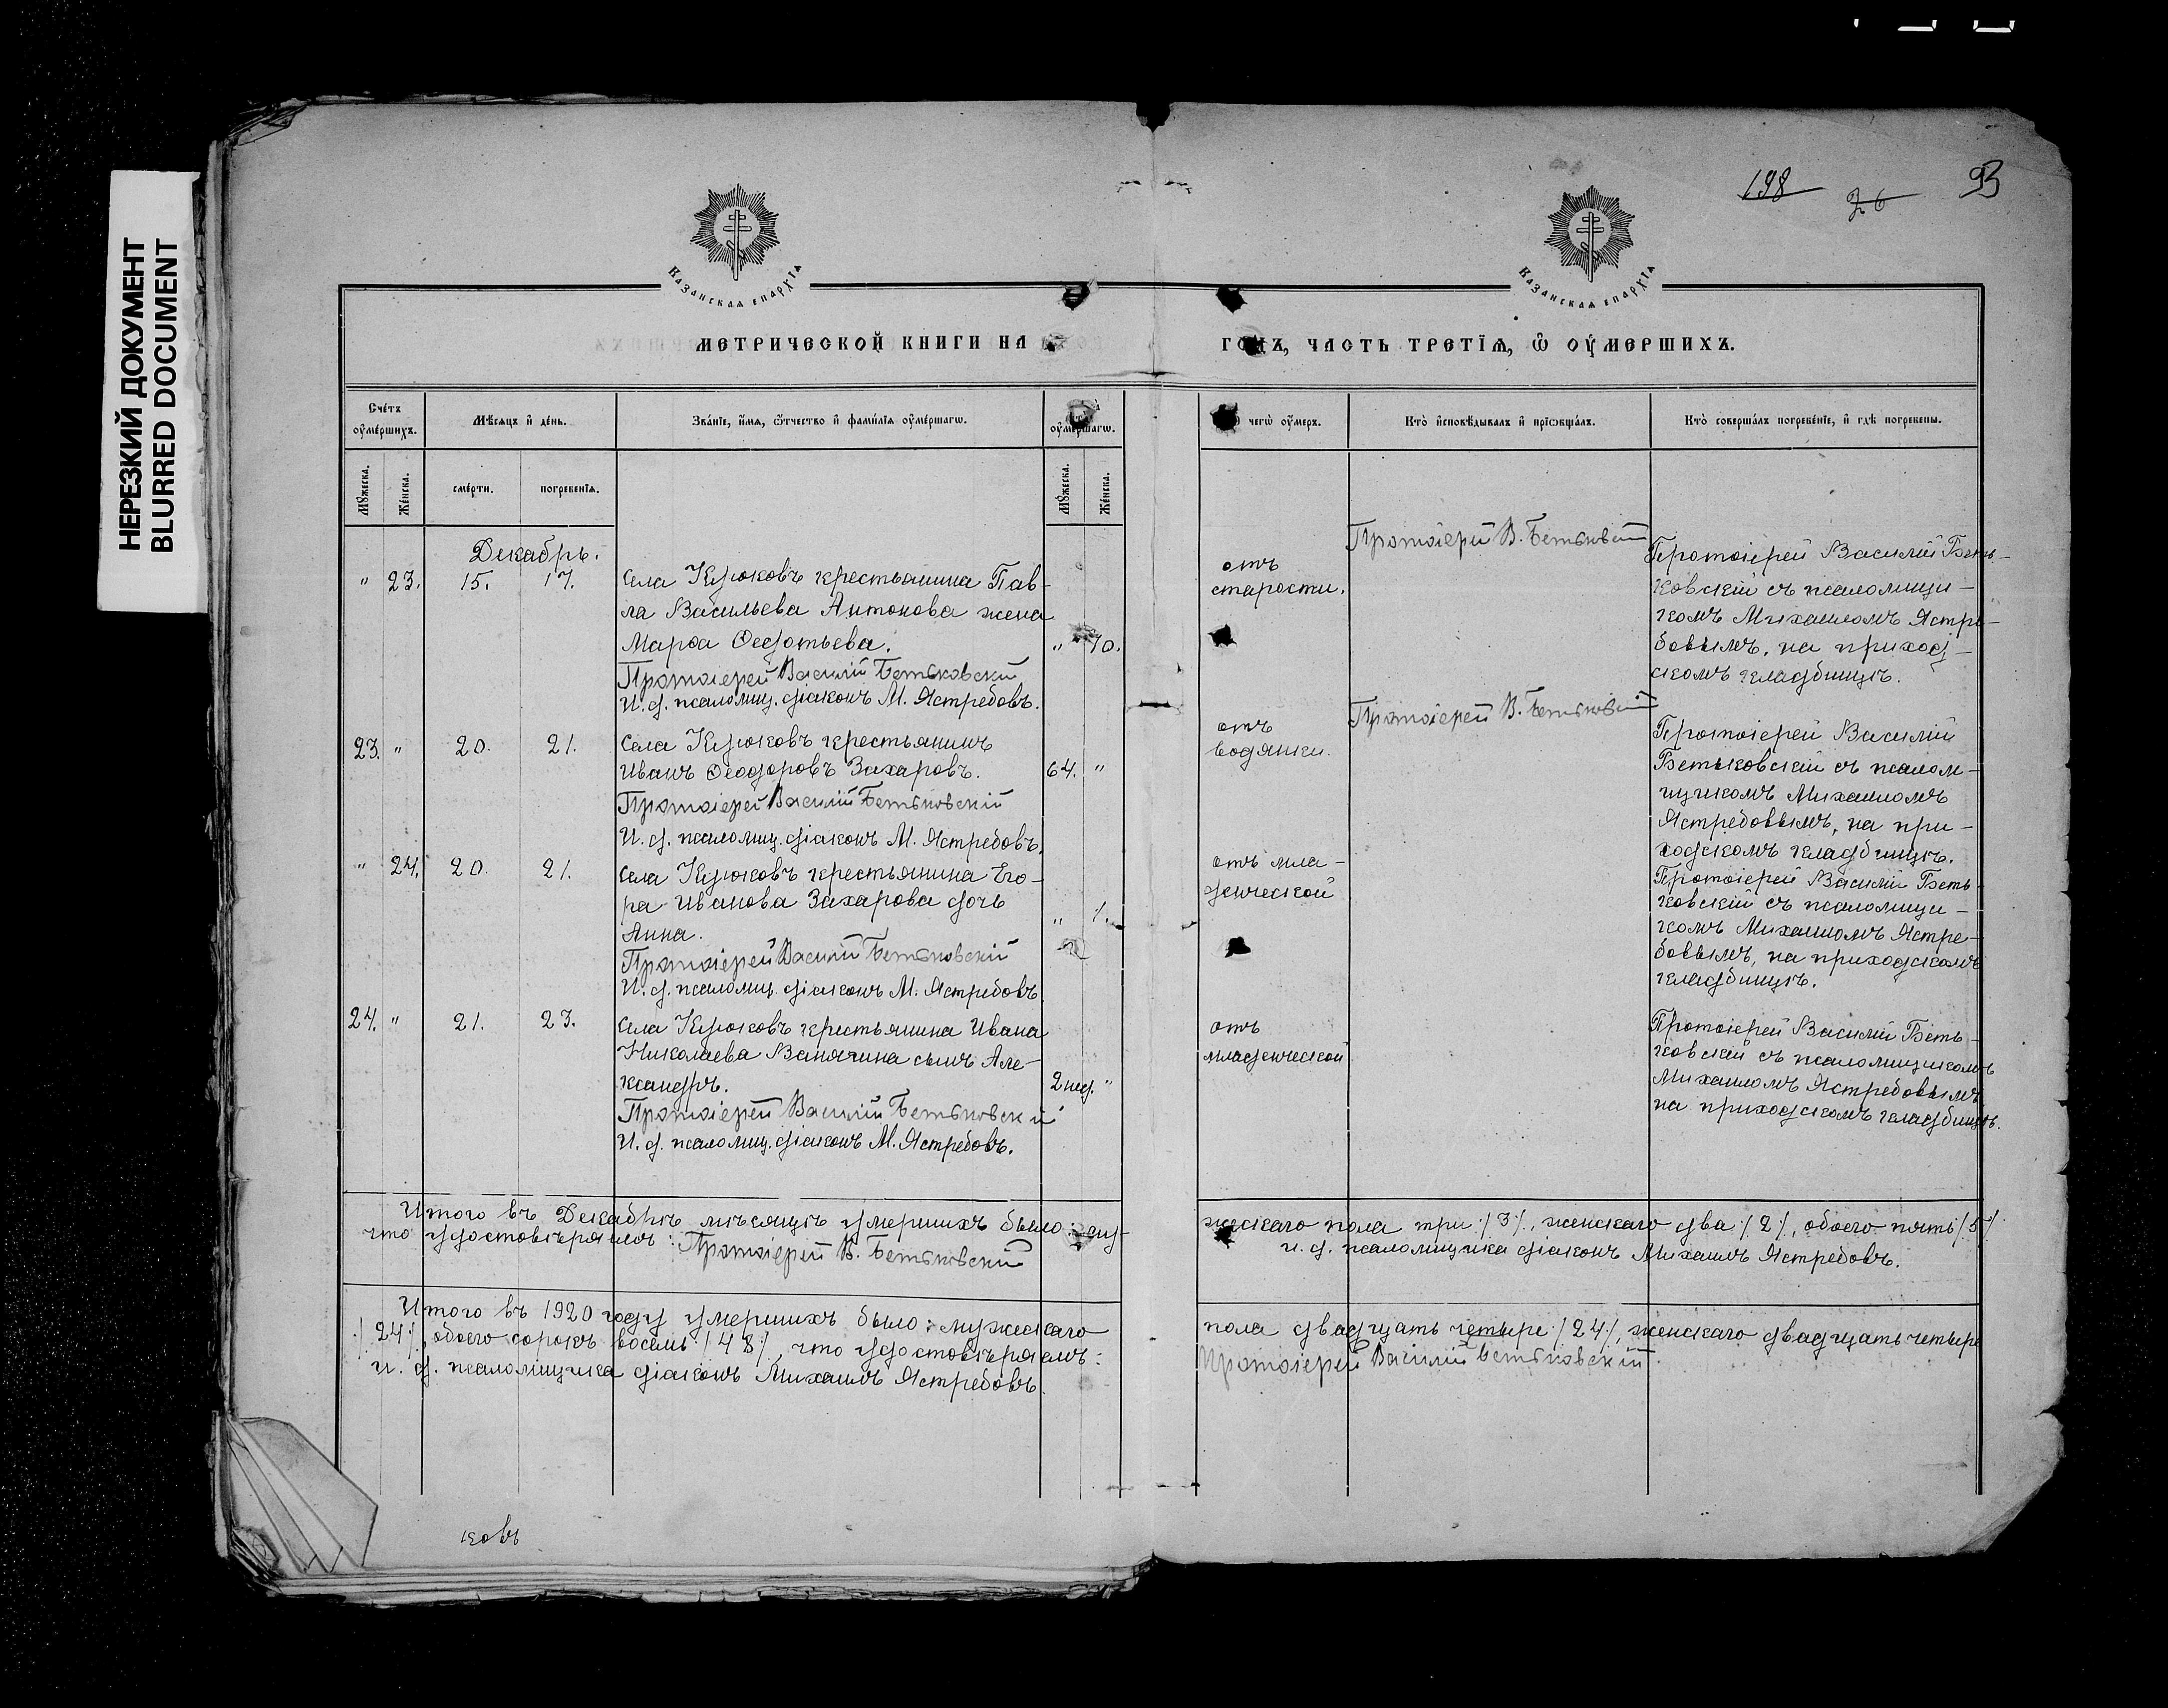 НЕРЕЗКИЙ ДОКУМЕНТ
BLURRED DOCUMENT
198 26
КАЗАНСКАЯ ЕПАРХІЯ
КАЗАНСКАЯ ЕПАРХІЯ
МЕТРИЧЕСКОЙ КНИГИ НА
ГОДЪ, ЧАСТЬ ТРЕТІѦ, Ѡ ОУМЕРШИХЪ.
Счéтъ оу҆мéршихъ.
Мѣсяцъ и҆ дéнь.
Звáніе, и҆́мя, ѻ҆́тчество и҆ фами́лія оу҆мéршагѡ.
оу҆мéршагѡ.
чегѡ̀ оу҆́меръ.
Ктò и҆сповѣ́дывалъ и҆ прїѡбщáлъ.
Ктò совершáлъ погребéніе, и҆ гдѣ̀ погребены.
Мꙋжеска.
Жéнска.
смéрти.
погребéнїя.
Мꙋжеска.
Жéнска.
Декабрь.
" 23. 15. 17. Села Кузюковъ крестьянина Пав-
ла Васильева Антонова жена
Марѳа Ѳедотьева. " 70.
Протоіерей Василій Бетьковскій
И. д. псаломщ. діаконъ М. Ястребовъ.
отъ
старости.
Протоіерей В. Бетьковскій
Протоіерей Василій Беть-
ковскій съ псаломщи-
комъ Михаиломъ Ястре-
бовымъ, на приход-
скомъ кладбищѣ.
23. " 20. 21. Села Кузюковъ крестьянинъ
Иванъ Ѳеодоровъ Захаровъ. 64. "
Протоіерей Василій Бетьковскій
И. д. псаломщ. діаконъ М. Ястребовъ.
отъ
водянки.
Протоіерей В. Бетьковскій
Протоіерей Василій
Бетьковскій съ псалом-
щикомъ Михаиломъ
Ястребовымъ, на при-
ходскомъ кладбищѣ.
" 24. 20. 21. Села Кузюковъ крестьянина Его-
ра Иванова Захарова дочь
Анна. " 1.
Протоіерей Василій Бетьковскій
И. д. псаломщ. діаконъ М. Ястребовъ
отъ мла-
денческой
Протоіерей Василій Беть-
ковскій съ псаломщи-
комъ Михаиломъ Ястре-
бовымъ, на приходскомъ
кладбищѣ.
24. " 21. 23. Села Кузюковъ крестьянина Ивана
Николаева Ванячина сынъ Але-
ксандръ. 2 нед. "
Протоіерей Василій Бетьковскій
И. д. псаломщ. діаконъ М. Ястребовъ.
отъ
младенческой
Протоіерей Василій Беть-
ковскій съ псаломщикомъ
Михаиломъ Ястребовымъ
на приходскомъ кладбищѣ.
Итого въ Декабрѣ мѣсяцѣ умершихъ было: му-
жескаго пола три /3/, женскаго два /2/, обоего пять /5/
что удостовѣряемъ: Протоіерей В. Бетьковскій
и. д. псаломщика діаконъ Михаилъ Ястребовъ.
Итого въ 1920 году умершихъ было: мужескаго
пола двадцать четыре /24/, женскаго двадцать четыре
/24/, обоего сорокъ восемь /48/, что удостовѣряемъ:
Протоіерей Василій Бетьковскій.
и. д. псаломщика діаконъ Михаилъ Ястребовъ.
ковъ